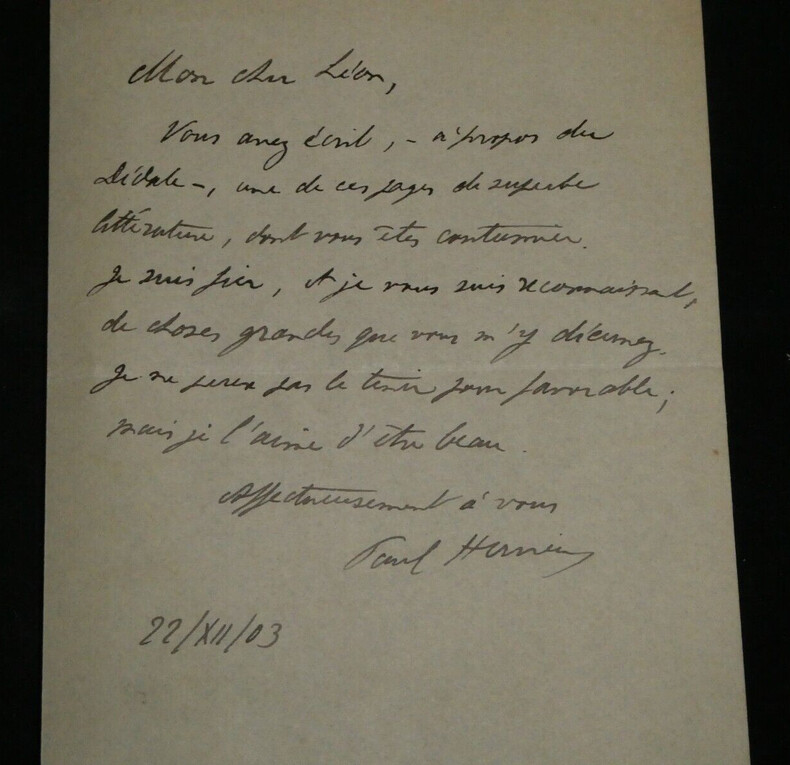 Mon cher Léon,
Vous avez écrit, - à propos du
Dédale -, une de ces pages de superbe
littérature, dont vous êtes coutumier.
Je suis fier, et je vous suis reconnaissant,
de choses grandes que vous m'y
Je ne pas le tenir pour favorable ;
mais je l'aime d'être beau.
Affectueusement à vous
Paul Hervieu
22/XII/03